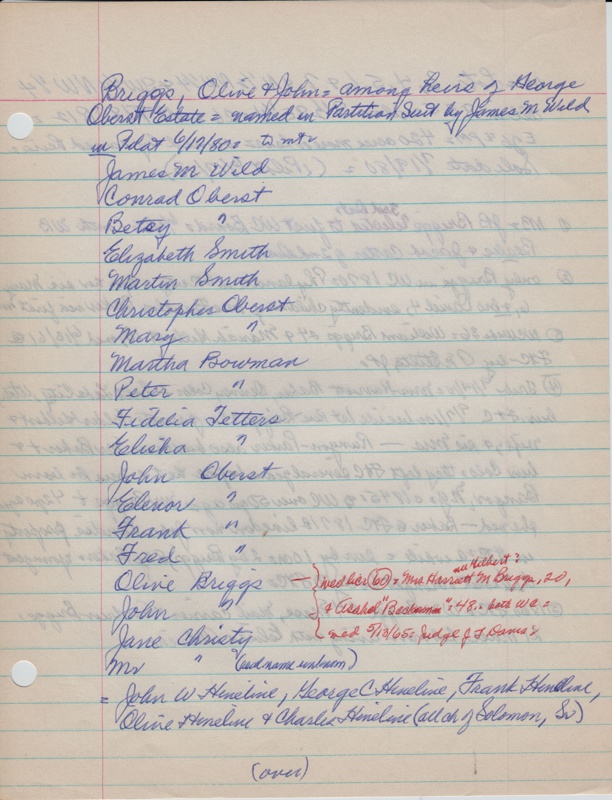 Briggs, Olive & John = among heirs of George
Oberst Estate = named in Partition Suit by James M Wild
in Pilot 6/12/80 = to wit =
James M Wild
Conrad Oberst
Betsy "
Elizabeth Smith
Martin Smith
Christopher Oberst
Mary "
Martha Bowman
Peter "
Fidelia Tetters
Elisha "
John Oberst
Elenor "
Frank "
Fred "
Olive Briggs —
John "
Jane Christy
Mr " (and name unknown)
nee Hilbert?
med lic (60) = Mrs Harriett M Briggs, 20,
& Asahel "Beekman", 48. both WC =
med 5/13/65 = Judge J F Davis =
= John W Hineline, George C Hineline, Frank Hineline,
Olive Hineline & Charles Hineline (all ch of Solomon, Sr)
(over)